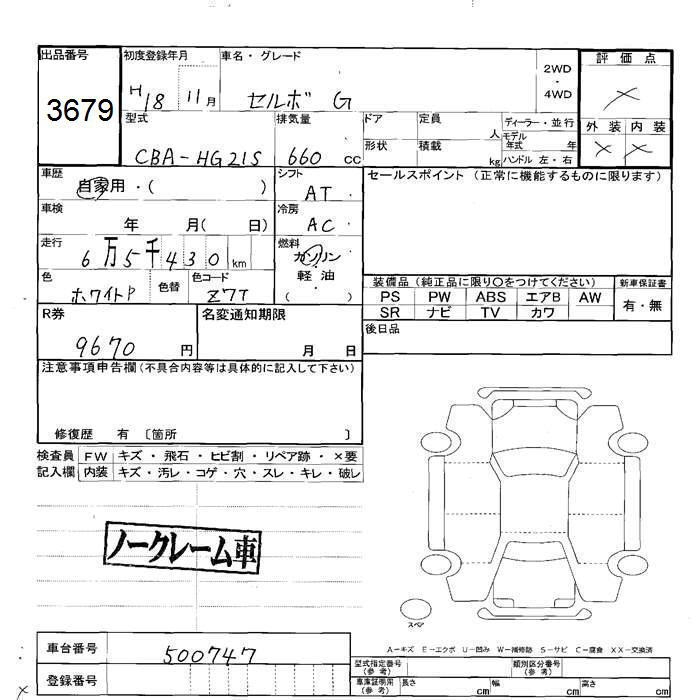 出品番号 初度登録年月 車名・グレード 2WD・4WD 評価点
3679 H18 11月 セルボ G ×
型式 排気量 ドア 定員 人 ディーラー・並行 外装 内装
CBA-HG21S 660 cc 形状 積載 kg モデル年式 年 × ×
ハンドル 左・右
車歴 自家用・( ) シフト AT セールスポイント(正常に機能するものに限ります)
車検 年 月( 日) 冷房 AC
走行 6万5千430km 燃料 ガソリン
色 ホワイトP 色替 色コード Z7T 軽油 ( )
装備品(純正品に限り○をつけてください) 新車保証書
PS PW ABS エアB AW 有・無
SR ナビ TV カワ
R券 9670 円 名変通知期限 月 日 後日品
注意事項申告欄(不具合内容等は具体的に記入して下さい)
修復歴 有 〔箇所 〕
検査員 FW キズ・飛石・ヒビ割・リペア跡・×要
記入欄 内装 キズ・汚レ・コゲ・穴・スレ・キレ・破レ
ノークレーム車
スペア
A-キズ E-エクボ U-凹み W-補修跡 S-サビ C-腐食 XX-交換済
車台番号 500747
型式指定番号(参考) 類別区分番号(参考)
登録番号 車庫証明用(参考) 長さ cm 幅 cm 高さ cm
×